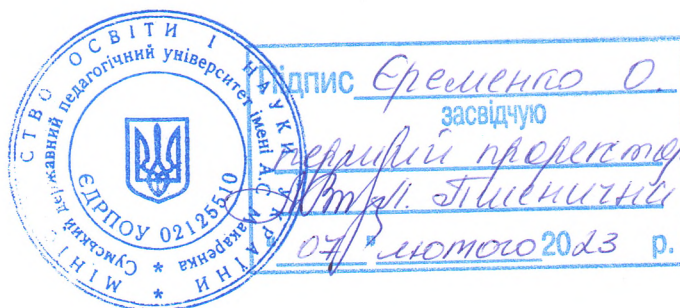 МІНІСТЕРСТВО ОСВІТИ І НАУКИ УКРАЇНИ *
Сумський державний педагогічний університет імені А.С. Макаренка *
ЄДРПОУ 02125510
Підпис Єременко О.
засвідчую
перший проректор
Л. Пшенична
"07" лютого 2023 р.